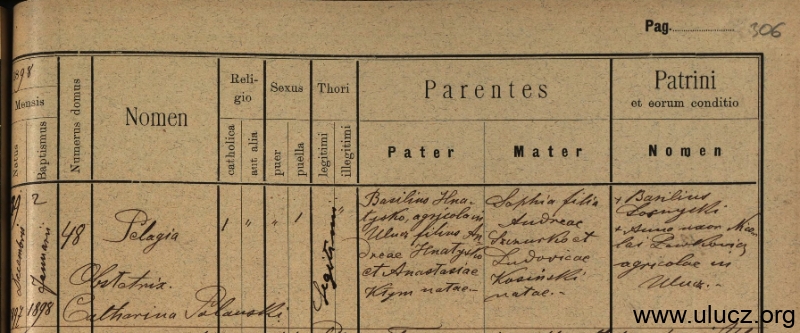 Pag. 306
1898
Mensis
Natus
Baptismus
Numerus domus
Nomen
Religio
catholica
aut alia
Sexus
puer
puella
Thori
legitimi
illegitimi
Parentes
Pater
Mater
Patrini
et eorum conditio
Nomen
29 Decembris
2 Januarii
1898
48
Pelagia
Obstetrix
Catharina
1
"
"
1
Legitimi
"
Basilius Hna-
tysko, agricola in
Ulucz filius An-
dreae Hnatysko
et Anastasiae
Kłym natae.-
Sophia filia
Andreae
et
Ludovicae
Kosiński
natae.-
+ Basilius
+ Anna uxor
agricolae in
Ulucz.-
www.ulucz.org